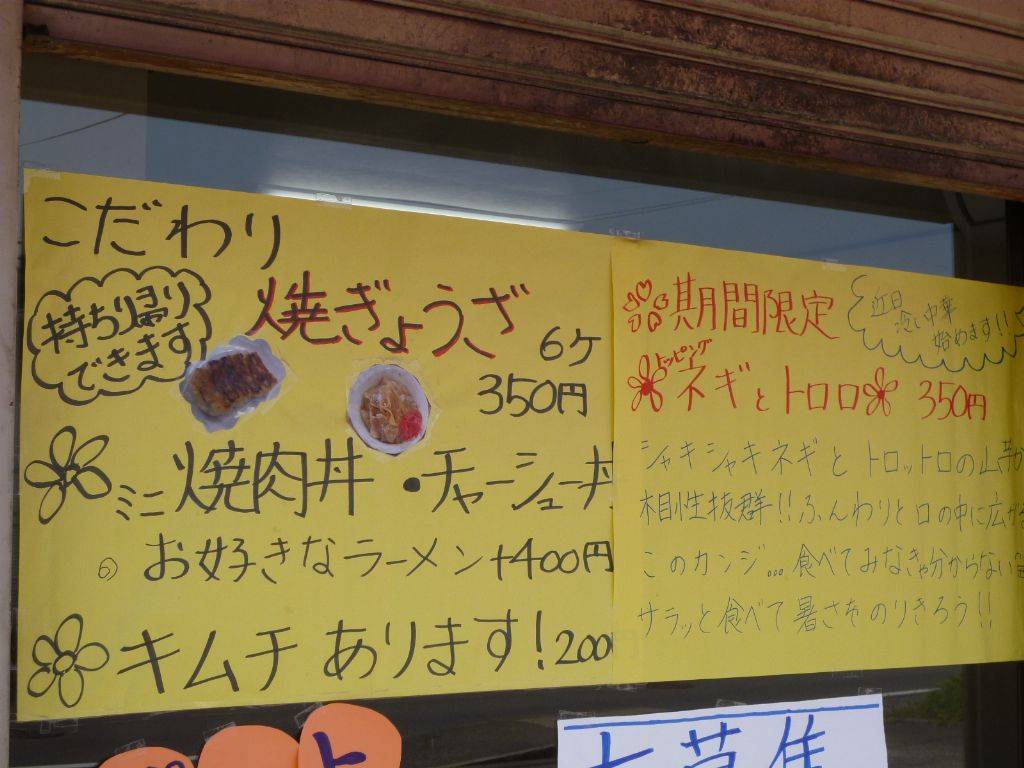 こだわり
持ち帰り
できます
焼ぎょうざ
6ケ
350円
ミニ焼肉丼・チャーシュー丼
お好きなラーメン+400円
キムチあります!200
期間限定
近日
冷し中華
始めます!!
トッピング
ネギとトロロ 350円
シャキシャキネギとトロットロの山芋が
相性抜群!!ふんわりと口の中に広が
このカンジ…食べてみなきゃ分からない
サラッと食べて暑さをのりきろう!!